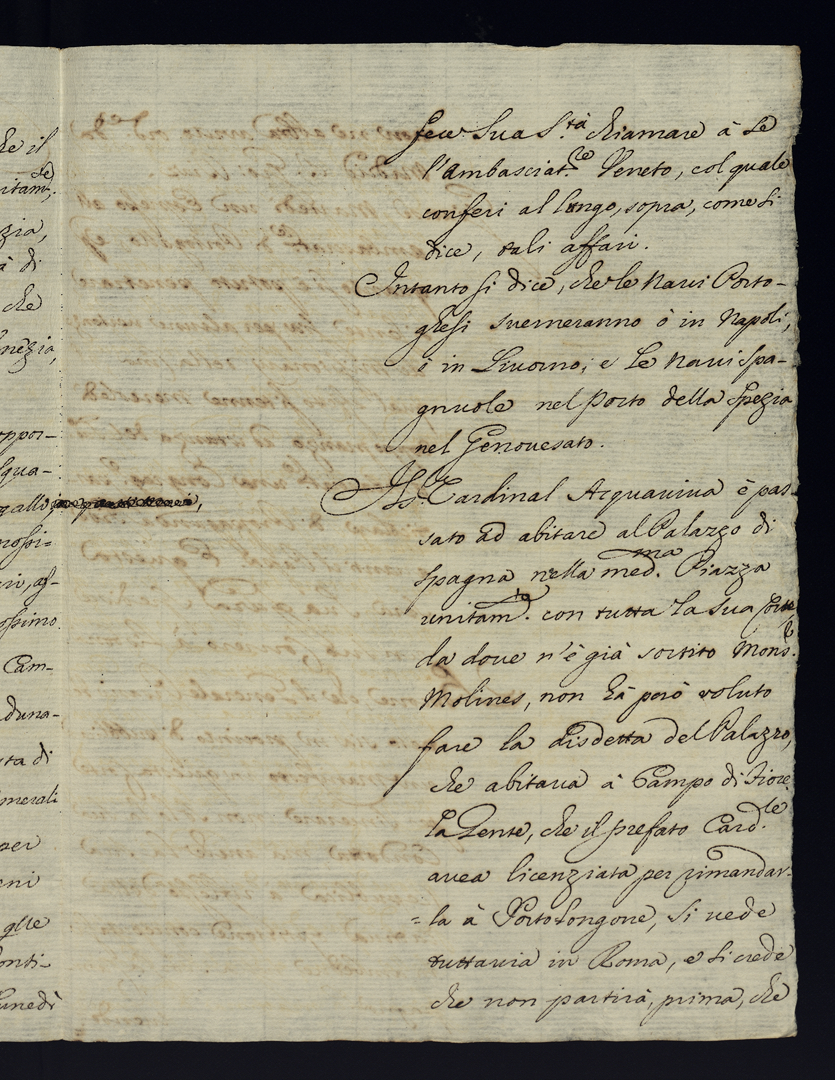 fece Sua S.tà chiamare à Se
l'Ambasciat.re Veneto, col quale
conferì al lungo, sopra, come si
dice, tali affari.
Intanto si dice, che le Navi Porto-
ghesi sverneranno ò in Napoli,
ò in Livorno; e le Navi Spa-
gnuole nel Porto della Spezia
nel Genovesato.
Il Sig.r Cardinal Acquaviva è pas-
sato ad abitare al Palazzo di
Spagna nella med.ma Piazza
unitam.te con tutta la sua Corte
da dove n'è già sortito Mons.r
Molines, non hà però voluto
fare la disdetta del Palazzo,
che abitava à Campo di Fiore
la Gente, che il prefato Card.le
avea licenziata per rimandar-
=la à Portolongone, si vede
tuttavia in Roma, e si crede
che non partirà, prima, che
he il
itam.te
zia,
à di
che
nezia,
oppor-
qua-
gallo
rossi=
ssimo
Cam-
duna-
sta di
merali
per
eni
q̃lle
onti-
unedì